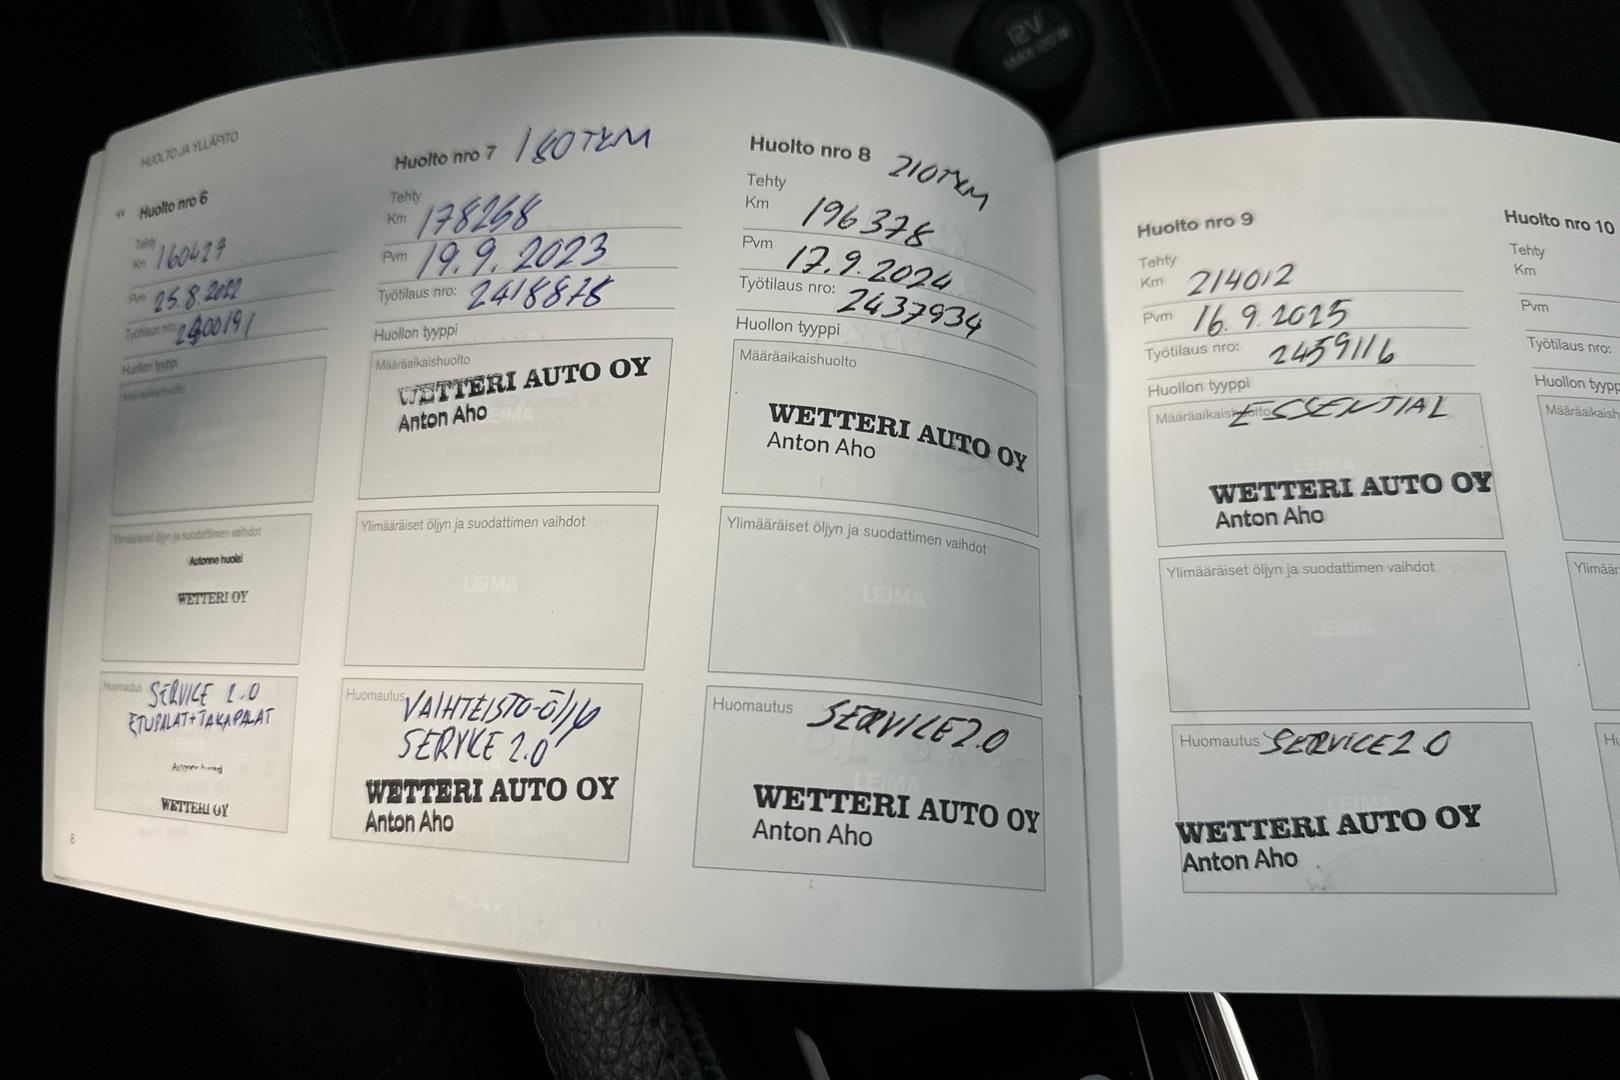 12V
MAX 120 W
HUOLTO JA YLLÄPITO
Huolto nro 6
Tehty
Km 160427
Pvm 25.8.2022
Työtilaus nro: 2400191
Huollon tyyppi
Määräaikaishuolto
Ylimääräiset öljyn ja suodattimen vaihdot
WETTERI OY
Huomautus SERVICE 2.0
ETUPALAT+TAKAPALAT
WETTERI OY
8
Huolto nro 7 180TKM
Tehty
Km 178268
Pvm 19.9.2023
Työtilaus nro: 2418878
Huollon tyyppi
Määräaikaishuolto
WETTERI AUTO OY
Anton Aho
LEIMA
Ylimääräiset öljyn ja suodattimen vaihdot
LEIMA
Huomautus VAIHTEISTO-ÖLJY
SERVICE 2.0
WETTERI AUTO OY
Anton Aho
Huolto nro 8 210TKM
Tehty
Km 196378
Pvm 17.9.2024
Työtilaus nro: 2437934
Huollon tyyppi
Määräaikaishuolto
WETTERI AUTO OY
Anton Aho
Ylimääräiset öljyn ja suodattimen vaihdot
LEIMA
Huomautus SERVICE 2.0
LEIMA
WETTERI AUTO OY
Anton Aho
Huolto nro 9
Tehty
Km 214012
Pvm 16.9.2025
Työtilaus nro: 2459116
Huollon tyyppi
Määräaikaishuolto ESSENTIAL
LEIMA
WETTERI AUTO OY
Anton Aho
Ylimääräiset öljyn ja suodattimen vaihdot
LEIMA
Huomautus SERVICE 2.0
LEIMA
WETTERI AUTO OY
Anton Aho
Huolto nro 10
Tehty
Km
Pvm
Työtilaus nro:
Huollon tyypp
Määräaikaish
Ylimäär
Hu